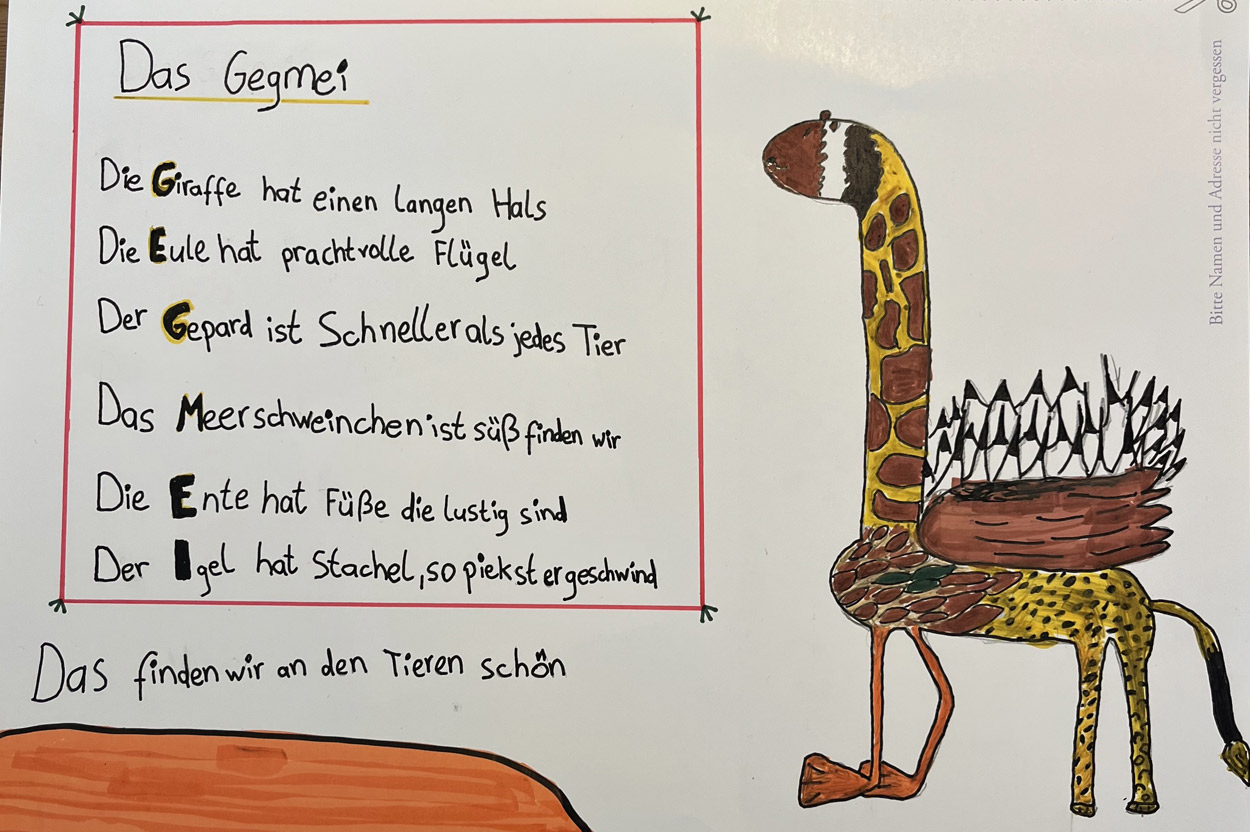 Das Gegmei
Die Giraffe hat einen langen Hals
Die Eule hat prachtvolle Flügel
Der Gepard ist Schneller als jedes Tier
Das Meerschweinchen ist süß finden wir
Die Ente hat Füße die lustig sind
Der Igel hat Stachel, so piekst er geschwind
Das finden wir an den Tieren schön
Bitte Namen und Adresse nicht vergessen